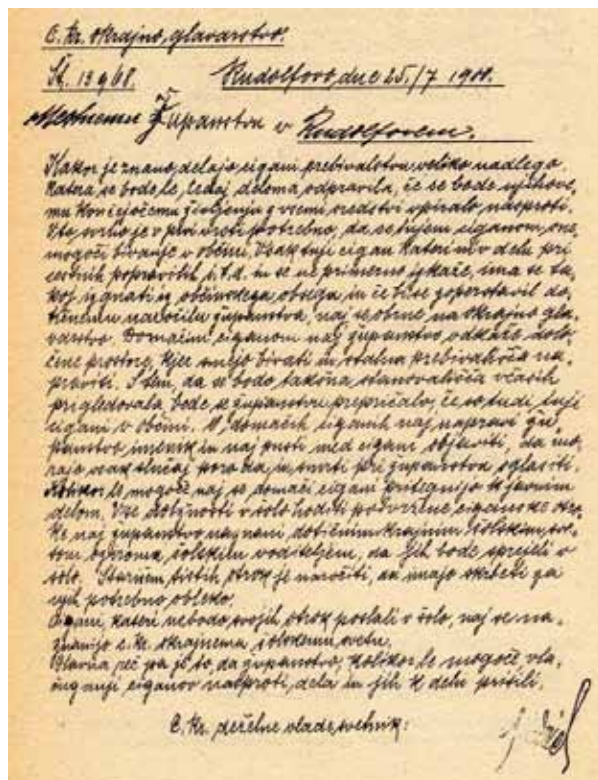 C. kr. okrajno glavarstvo.
Št. 13968. Rudolfovo, dne 25./7 1908.
Mestnemu županstvu v Rudolfovem.
Kakor je znano, delajo cigani prebivalstvu veliko nadlego,
katera se bode le, tedaj deloma, odpravila, če se bode njihove,
mu živjenju z vsemi sredstvi upiralo nasproti.
V to svrho je v prvi vrsti potrebno, da se tujem ciganom, one,
mogoči bivanje v občini. Vsak tuji cigan kateri ni v delu pri
cestnih popravilih i.t.d. in se ne primerno izkaže, ima se ta,
koj izgnati iz občinskega obsega in če bi se zoperstavil do,
tičnemu naročilu županstva, naj se obrne na okrajno gla,
varstvo. Domačim ciganom naj županstvo odkaže dolo,
čene prostore, kjer smejo bivati in stalna prebivališča na,
praviti. S tem, da se bodo takšna stanovališča včasih
pregledovala, bode se županstvo prepričalo, če so tudi tuji
cigani v občini. O domačih ciganih naj napravi žu,
panstvo imenik in naj pusti med cigani objaviti, da mo,
rajo vsak slučaj poroda in smrti pri županstvu oglasiti.
Kolikor le mogoče naj se domači cigani pritegnijo k javnim
delom. Vse dolžnosti v šolo hoditi podvržene ciganske otro,
ke naj županstvo naznani dotičnim krajnim šolskim sve,
tom oziroma šolskim voditeljem, da jih bode sprejeli v
šolo. Starišem tistih otrok je naročiti, da imajo skrbeti za
njih potrebno obleko.
Cigani, kateri nebodo svojih otrok poslali v šolo, naj se na,
znanijo c. kr. okrajnemu šolskemu svetu.
Glavna reč pa je to, da županstvo, kolikor le mogoče vla,
ciganov nasproti dela in jih k delu prisili.
C. kr. deželne vlade svetnik: